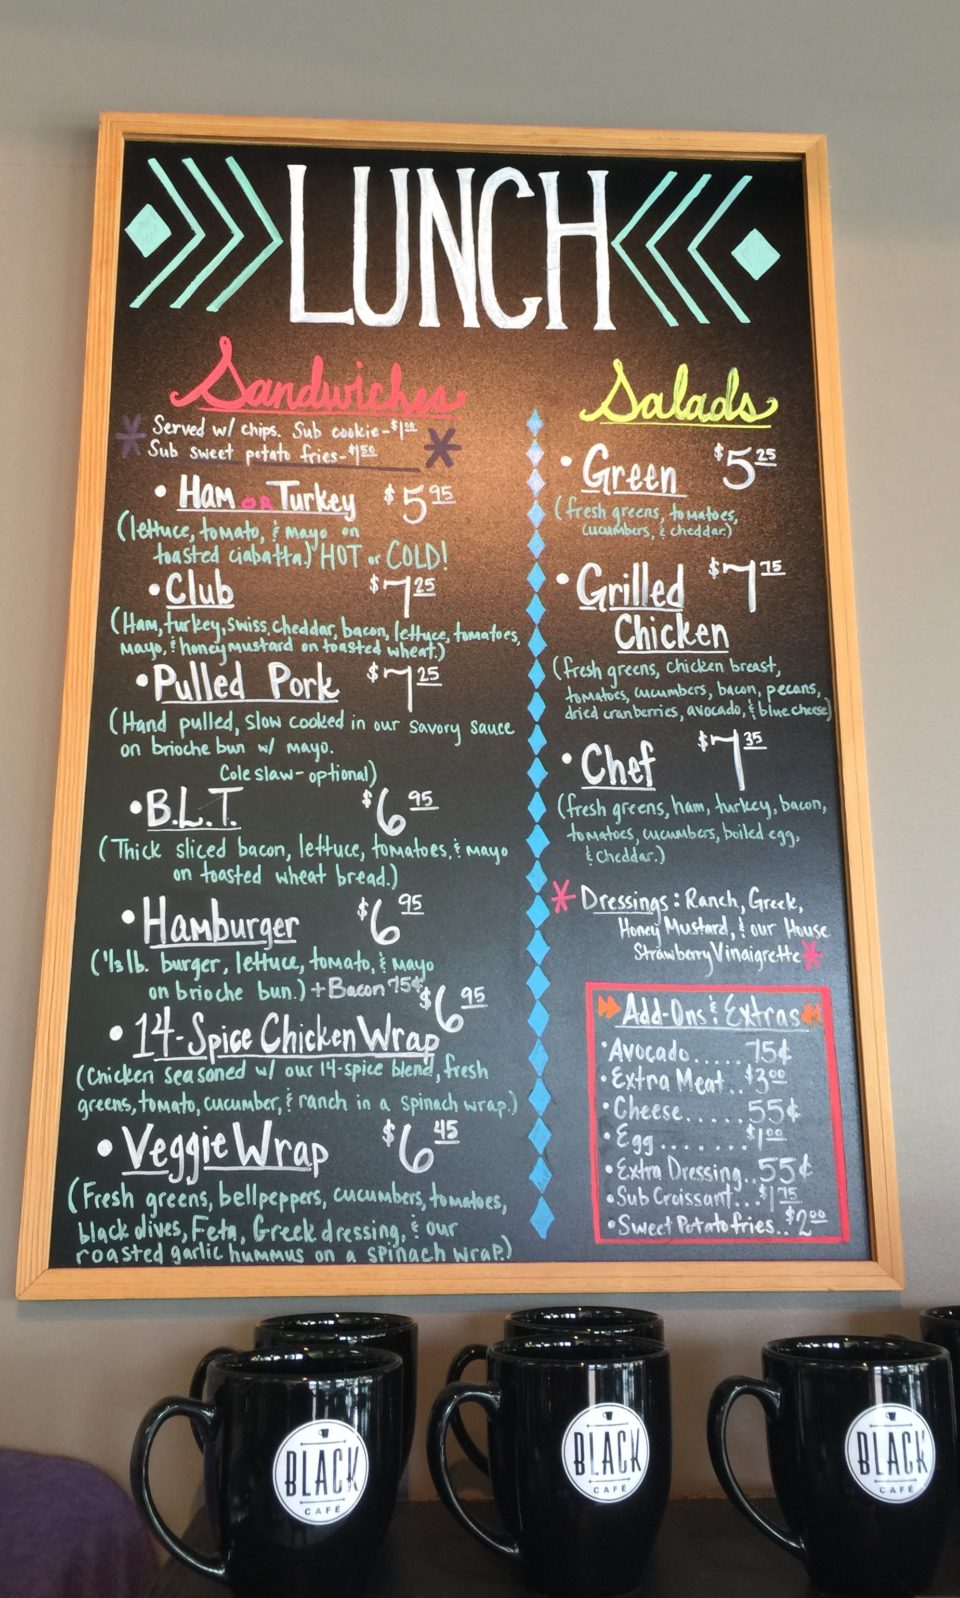 LUNCH
Sandwiches
* Served w/ chips. Sub cookie-$1.00
Sub sweet potato fries-$1.50 *
• Ham or Turkey $5.95
(lettuce, tomato, & mayo on
toasted ciabatta.) HOT or COLD!
• Club $7.25
(Ham, turkey, swiss, cheddar, bacon, lettuce, tomatoes,
mayo, & honey mustard on toasted wheat.)
• Pulled Pork $7.25
(Hand pulled, slow cooked in our savory sauce
on brioche bun w/ mayo.
Cole slaw-optional)
• B.L.T. $6.95
(Thick sliced bacon, lettuce, tomatoes, & mayo
on toasted wheat bread.)
• Hamburger $6.95
(1/3 lb. burger, lettuce, tomato, & mayo
on brioche bun.) + Bacon 75¢
• 14-Spice Chicken Wrap $6.95
(Chicken seasoned w/ our 14-spice blend, fresh
greens, tomato, cucumber, & ranch in a spinach wrap.)
• Veggie Wrap $6.45
(Fresh greens, bellpeppers, cucumbers, tomatoes,
black olives, Feta, Greek dressing, & our
roasted garlic hummus on a spinach wrap.)
Salads
• Green $5.25
(fresh greens, tomatoes,
cucumbers, & cheddar.)
• Grilled $7.75
Chicken
(fresh greens, chicken breast,
tomatoes, cucumbers, bacon, pecans,
dried cranberries, avocado, & blue cheese)
• Chef $7.35
(fresh greens, ham, turkey, bacon,
tomatoes, cucumbers, boiled egg,
& cheddar.)
* Dressings: Ranch, Greek,
Honey Mustard, & our House
Strawberry Vinaigrette *
Add-Ons & Extras
• Avocado.....75¢
• Extra Meat..$3.00
• Cheese.....55¢
• Egg.......$1.00
• Extra Dressing..55¢
• Sub Croissant...$1.75
• Sweet Potato fries..$2.00
BLACK
CAFÉ
BLACK
CAFÉ
BLACK
CAFÉ